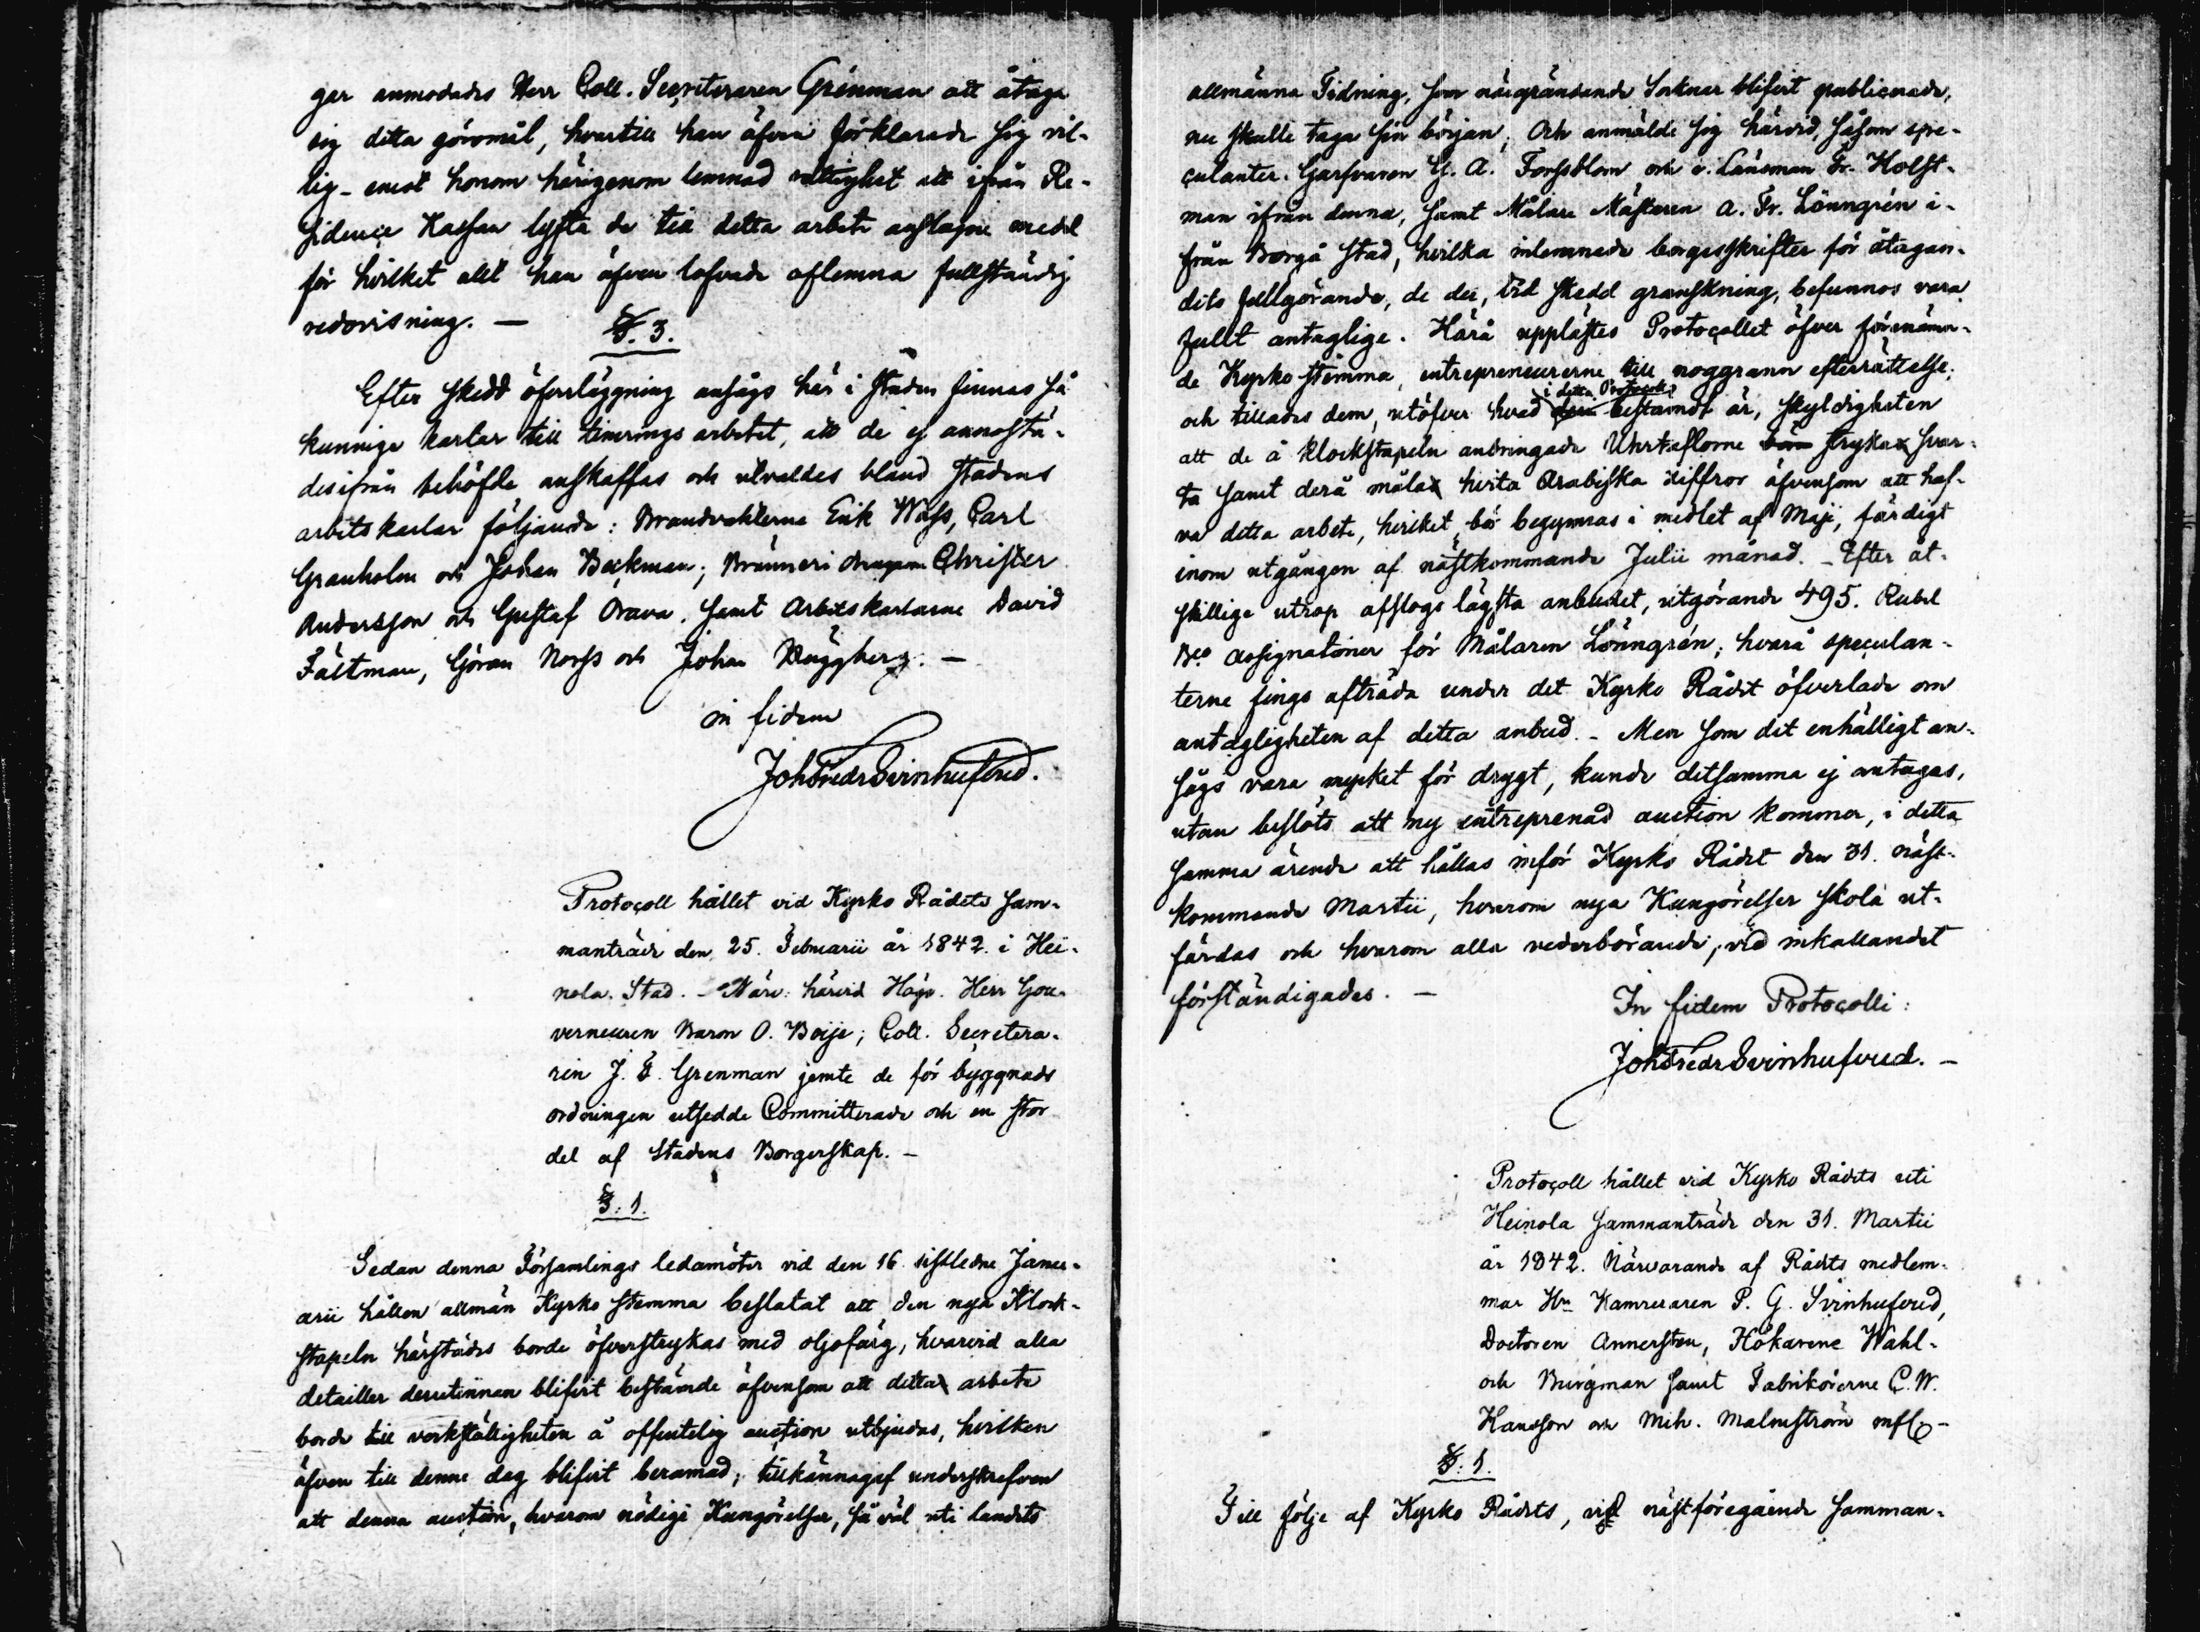 gar anmodades Herr Coll. Secreteraren Grénman att åtaga
sig detta göromål, hvartill han äfven förklarade sig vil-
lig - emot honom härigenom lemnad rättighet att ifrån Re-
sidence Kassan lyfta de till detta arbete anslagne medel
för hvilket allt han äfven lofvade aflemna fullständig
redovisning. —
§. 3.
Efter skedd öfverläggning ansågs här i staden finnas så
kunnige karlar till timrings arbetet, att de ej annorstä-
des ifrån behöfde anskaffas och utvaldes bland stadens
arbetskarlar följande: Brandvakterne Erik Wass, Carl
Granholm och Johan Beckman; Bränneri drengarne Christer
Andersson och Gustaf Orava, samt Arbetskarlarne David
Fältman, Göran Norss och Johan Väggberg. —
in fidem
Joh Fredr Svinhufvud.
Protocoll hållet vid Kyrko Rådets sam-
manträde den 25. Februarii år 1842. i Hei-
nola Stad. - Närv: härvid Högv. Herr Gou-
verneuren Baron O. Boije; Coll. Secretera-
ren J. E. Grenman jemte de för byggnads
ordningen utsedde Committerade och en stor
del af Stadens Borgerskap. —
§. 1.
Sedan denna Församlings ledamöter vid den 16 sistledne Janu-
arii hållen allmän Kyrko stemma beslutat att den nya Klock-
stapeln härstädes borde öfverstrykas med oljofärg, hvarvid alla
detailler derutinnan blifvit bestämde äfvensom att detta arbete
borde till verkställigheten å offentelig auction utbjudas, hvilken
äfven till denne dag blifvit beramad; tillkännagaf underskrefven
att denna auction, hvarom nödige Kungörelser, så väl uti landets
allmänna Tidning, som närgränsande Soknar blifvit publicerade,
nu skulle taga sin början; Och anmälde sig härvid, såsom spe-
culanter, Garfvaren G. A. Forssblom och v. Länsman Fr. Holst-
man ifrån denna, samt Målare Mästaren A. Fr. Lönngrén i-
från Borgå stad, hvilka inlemnade borgesskrifter för åtagan-
dets fullgörande, de der, vid skedd granskning, befunnos vara
fullt antaglige. Härå upplästes Protocollet öfver förenämn-
de Kyrko stämma, entrepreneurerne till noggrann efterrättelse;
i detta Protocoll
och tillades dem, utöfver hvad bestämdt är, skyldigheten
att de å klockstapeln anbringade Uhrtaflorne stryka svar-
ta samt derå måla hvita Arabiska siffror äfvensom att haf-
va detta arbete, hvilket bör begynnas i medlet af Maji, färdigt
inom utgången af nästkommande Julii månad. - Efter åt-
skillige utrop afslogs lägsta anbudet, utgörande 495. Rubel
Bco Assignationer för Målaren Lönngrén; hvarå speculan-
terne fingo afträda under det Kyrko Rådet öfverlade om
antagligheten af detta anbud. - Men som det enhälligt an-
sågs vara mycket för drygt, kunde detsamma ej antagas,
utan beslöts att ny entreprenad auction kommer, i detta
samma ärende att hållas inför Kyrko Rådet den 31. näst-
kommande Martii, hvarom nya Kungörelser skola ut-
färdas och hvarom alla vederbörande, vid inkallandet
förständigades. —
In fidem Protocolli:
Joh Fredr Svinhufvud. —
Protocoll hållet vid Kyrko Rådets uti
Heinola sammanträde den 31. Martii
år 1842. Närvarande af Rådets medlem-
mar Hrr Kamreraren P. G. Svinhufvud,
Doctoren Annersten, Hökarene Wahl-
och Bergman samt Fabrikörerne C. W.
Hansson och Mich. Malmström mfl. -
§. 1.
Till följe af Kyrko Rådets, vid nästföregående samman-